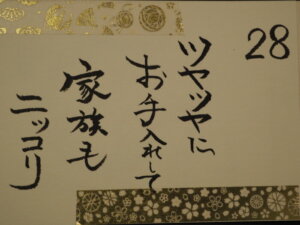 28
ツヤツヤに
お手入れして
家族も
ニッコリ